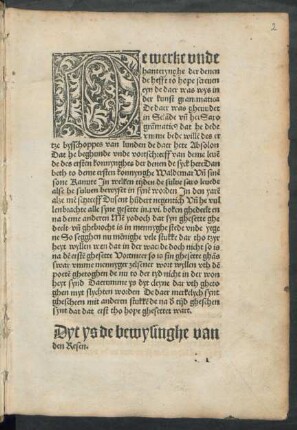 2
De werke vnde
hanterynghe der denen
de hefft to hope screuen
eyn de daer was wys in
der kunst grammatica
De daer was ghewdet
de dat he dede
vmme bede wille des er
tze bysschoppes van lunden de daer hete Absolon
Dat he beghunde vnde vortschreff van deme leue
de des ersten konnynghes der denen de hete Dan
beth to deme ersten konnynghe Waldemar
sone Kanute In welken tyden de sulue saxo leuede
alse he suluen bewyset in syne worden In den yaer
alse me schreeff Dusent hundert neghentich
lenbracht alle syne gesette in xvi boken ghedeelt en
na deme anderen
deelt ghebrocht is in mennyghe stede vnde yeghe
ne So segghen nu mennighe vele stucke dar tho tyer
heyt wyllen wen dat in der waer de doch nicht so is
na deme ghesette Vortmer so is syn ghesette ghans
swar vmme mennyger selsener wort wyllen
poete ghetoghen de nu to der tyd nicht in der won
heyt synd Daerumme ys dyt cleyne dar vth gheto
ghen myt slychten worden De daer merkelych synt
ghescheen mit anderen stucke de na der tyd gheschen
synt dat dat erst tho hope ghesettet wart.
Dyt ys de bewysinghe van
den Resen.